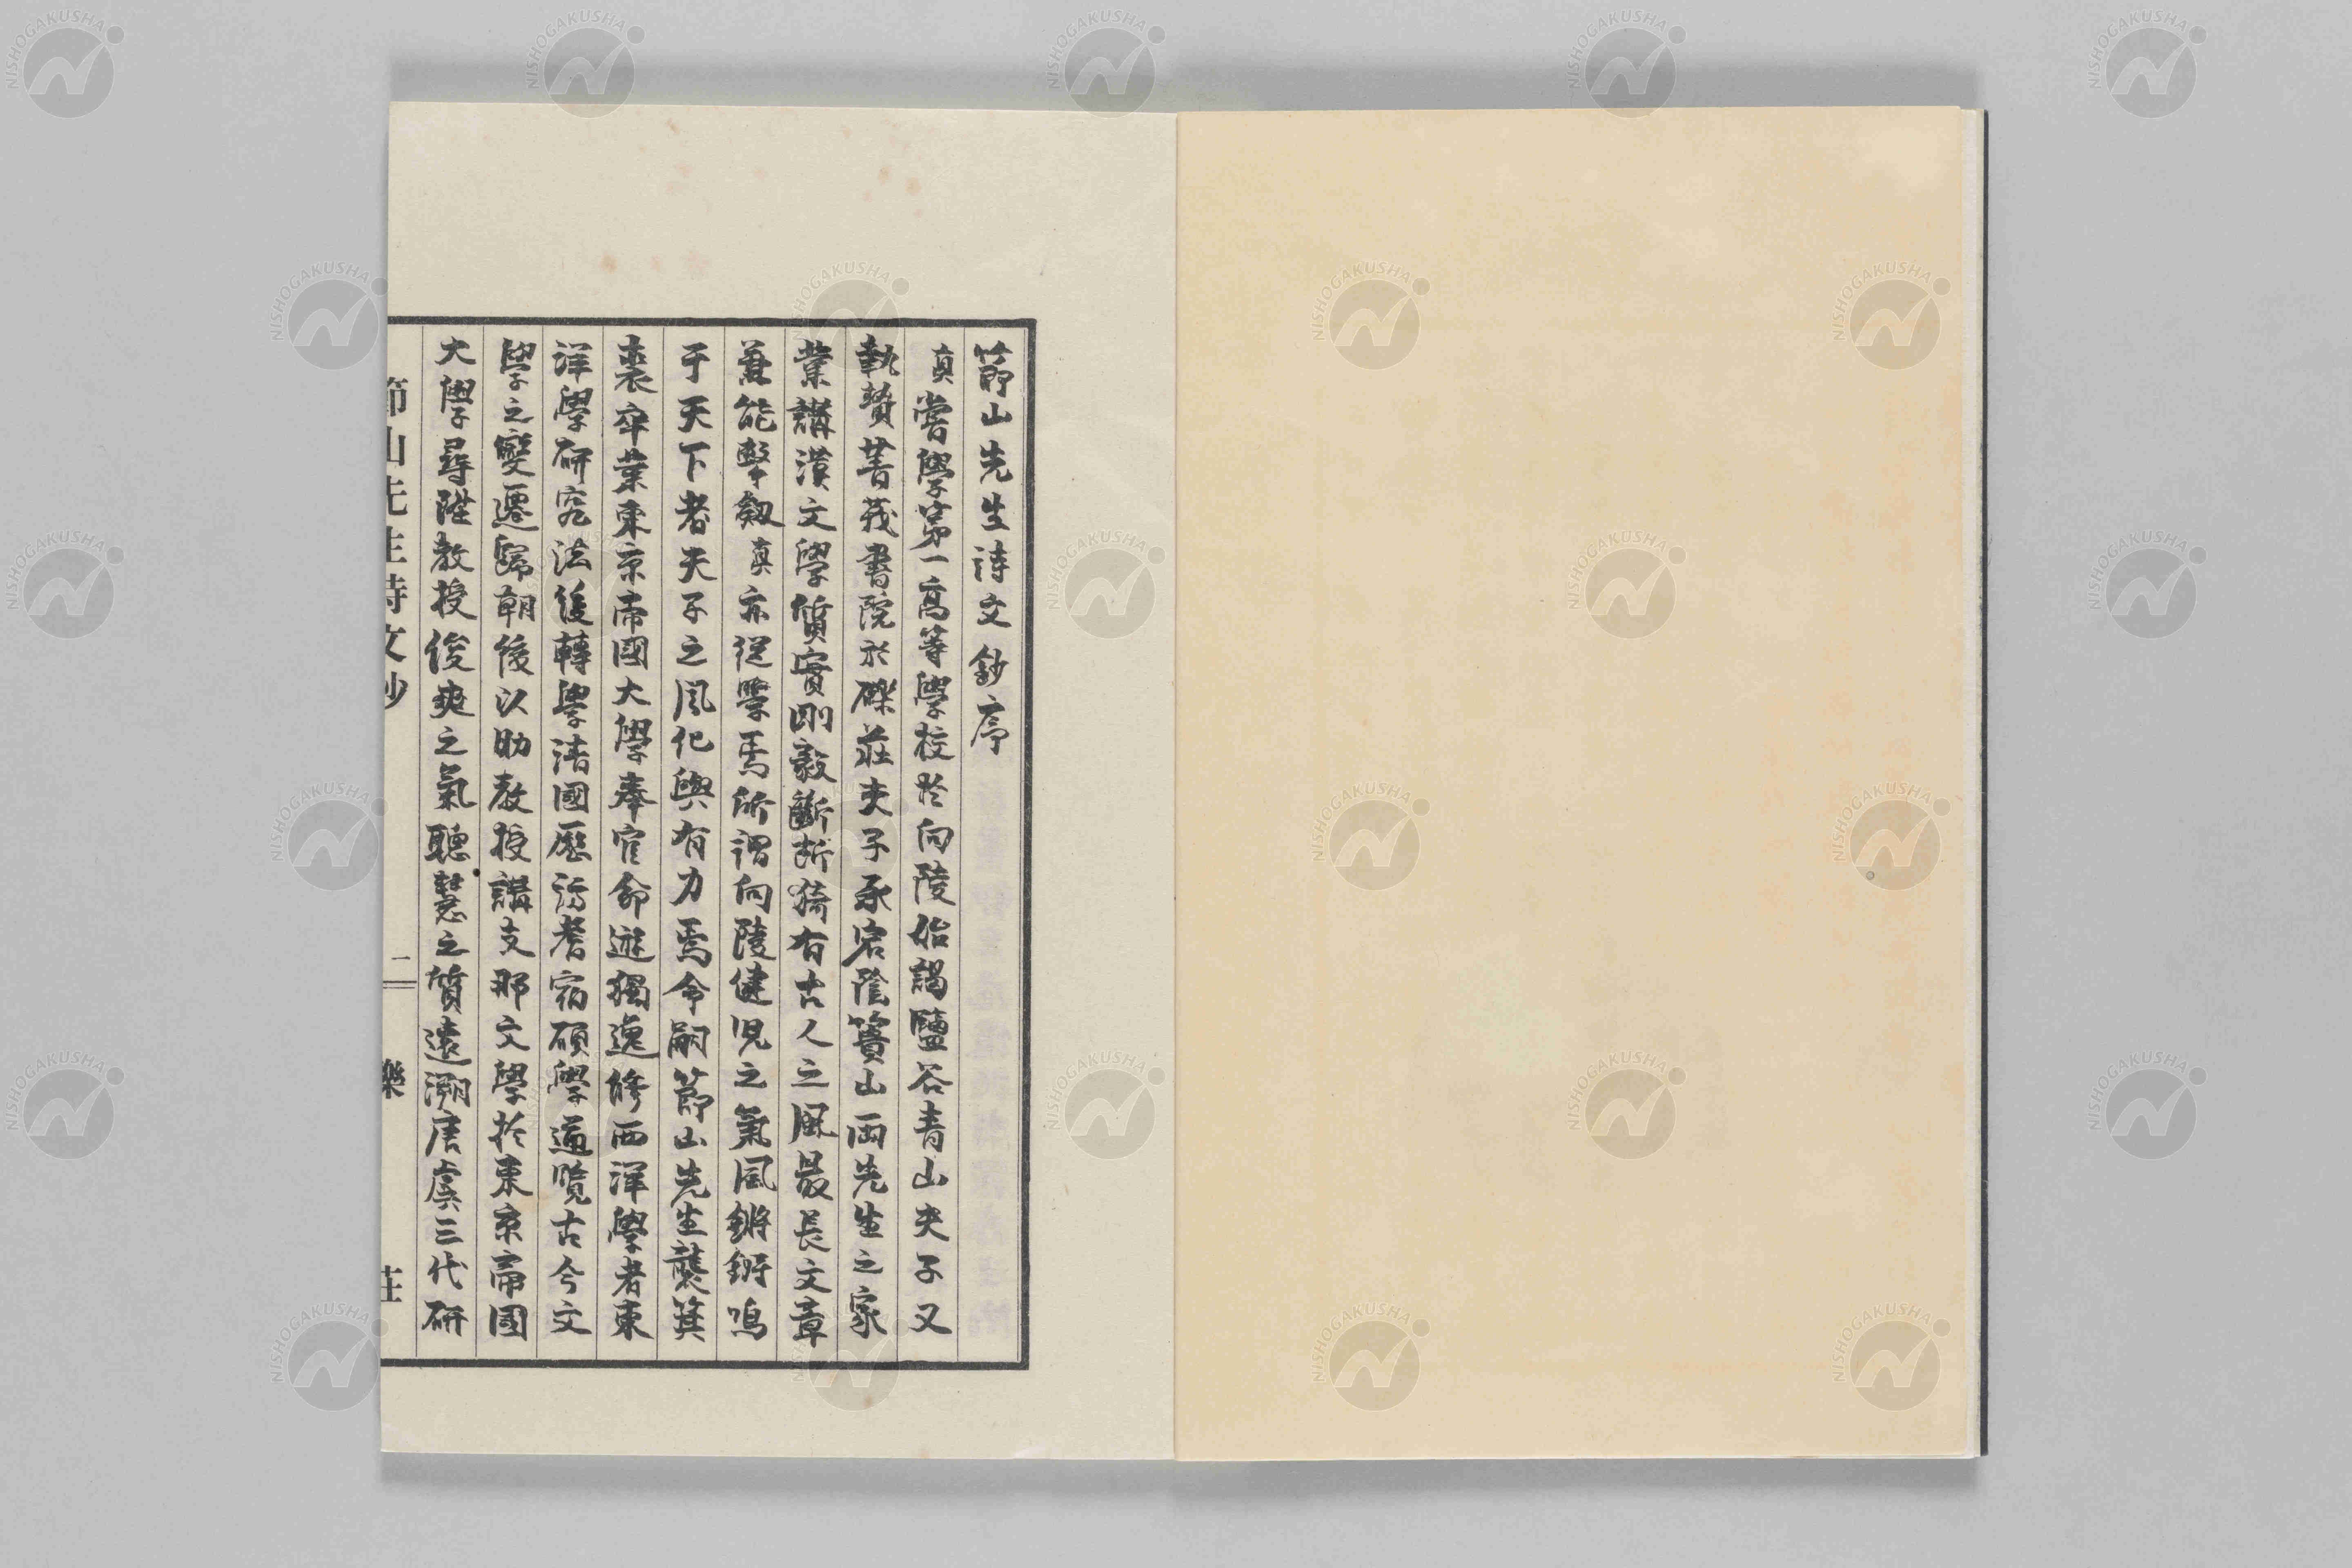 節山先生詩文鈔序
真嘗學第一高等學校於向陵始謁鹽谷青山夫子又
執贄菁莪書院於礫莊夫子承宕陰簣山兩先生之家
業講漢文學質實剛毅斷斷猗有古人之風最長文章
兼能擊劔真亦從學焉所謂向陵健児之氣風錚錚鳴
于天下者夫子之風化與有力焉令嗣節山先生襲箕
裘卒業東京帝國大學奉官命遊獨逸修西洋學者東
洋學研究法後轉學清國歷訪耆宿碩學遍覽古今文
學之變遷歸朝後以助教授講支那文學於東京帝國
大學尋陞教授俊爽之氣聰慧之質遠溯唐虞三代研
節山先生詩文鈔 二 樂 莊
NISHOGAKUSHA